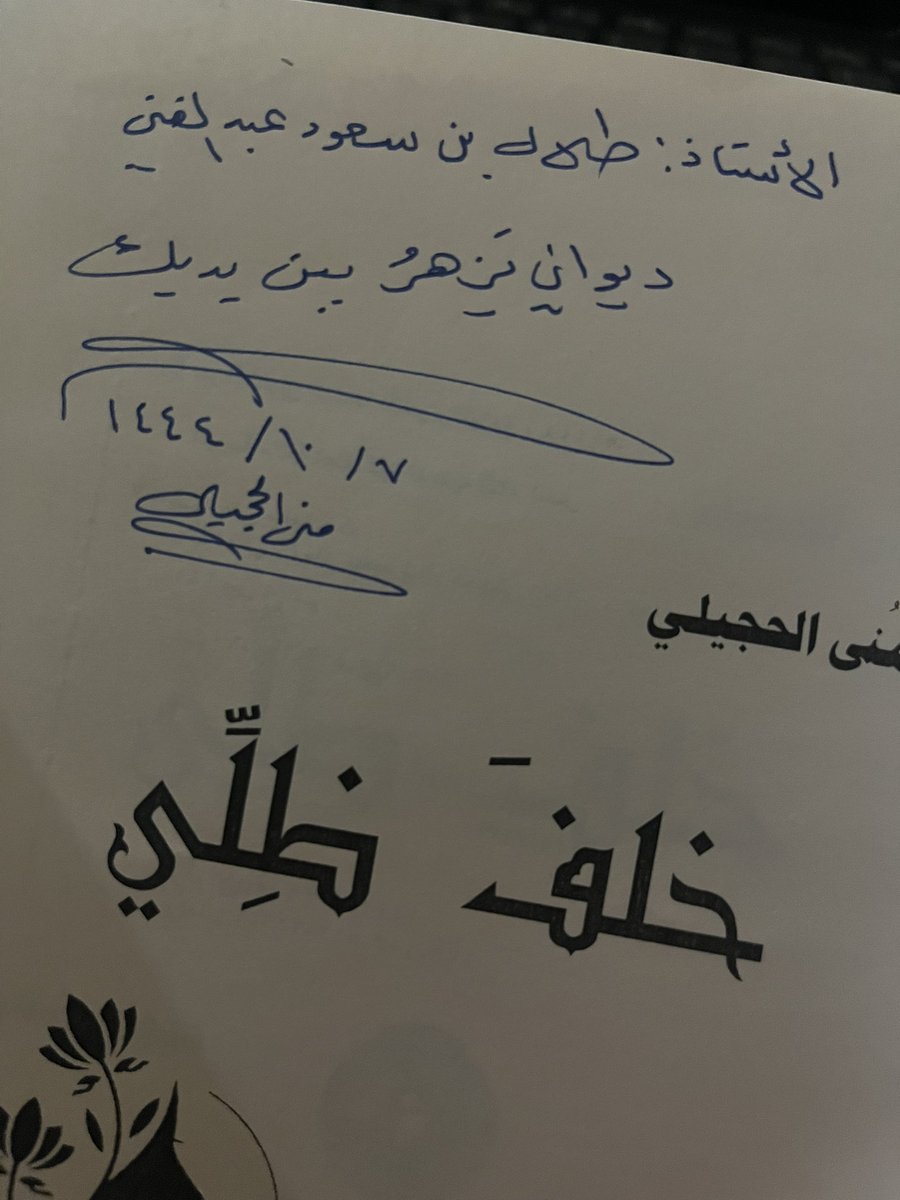 الأستاذ: طلال بن سعود عبدالغني
ديواني يَزهرُ بين يديك
٧ / ١٠ / ١٤٤٤
منى الحجيلي
مُنى الحجيلي
خلفَ ظِلِّي